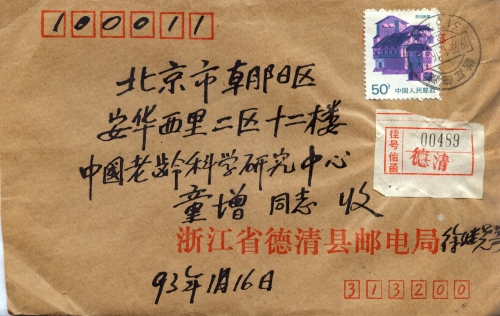 100011
50分
中国人民邮政
北京市朝阳区
安华西里二区十二楼
挂号信函
00489
德清
中國老龄科学研究中心
童增 同志 收
浙江省德清县邮电局
93年1月16日
313200